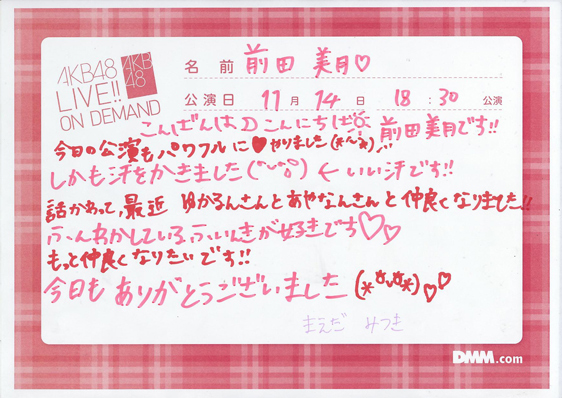 AKB48
LIVE!!
ON DEMAND
AKB
48
名前 前田 美月♡
公演日 11月14日 18:30公演
こんばんは☽こんにちは☼ 前田美月です!!
今日の公演もパワフルに♥やりました
しかも汗をかきました ← いい汗です!!
話かわって、最近 ゆかるんさんとあやなんさんと仲良くなりました!!
ふんわかしているふいんきが好きです♡♡
もっと仲良くなりたいです!!
今日もありがとうございました(*^v^*)♡♡
まえだ みつき
DMM.com